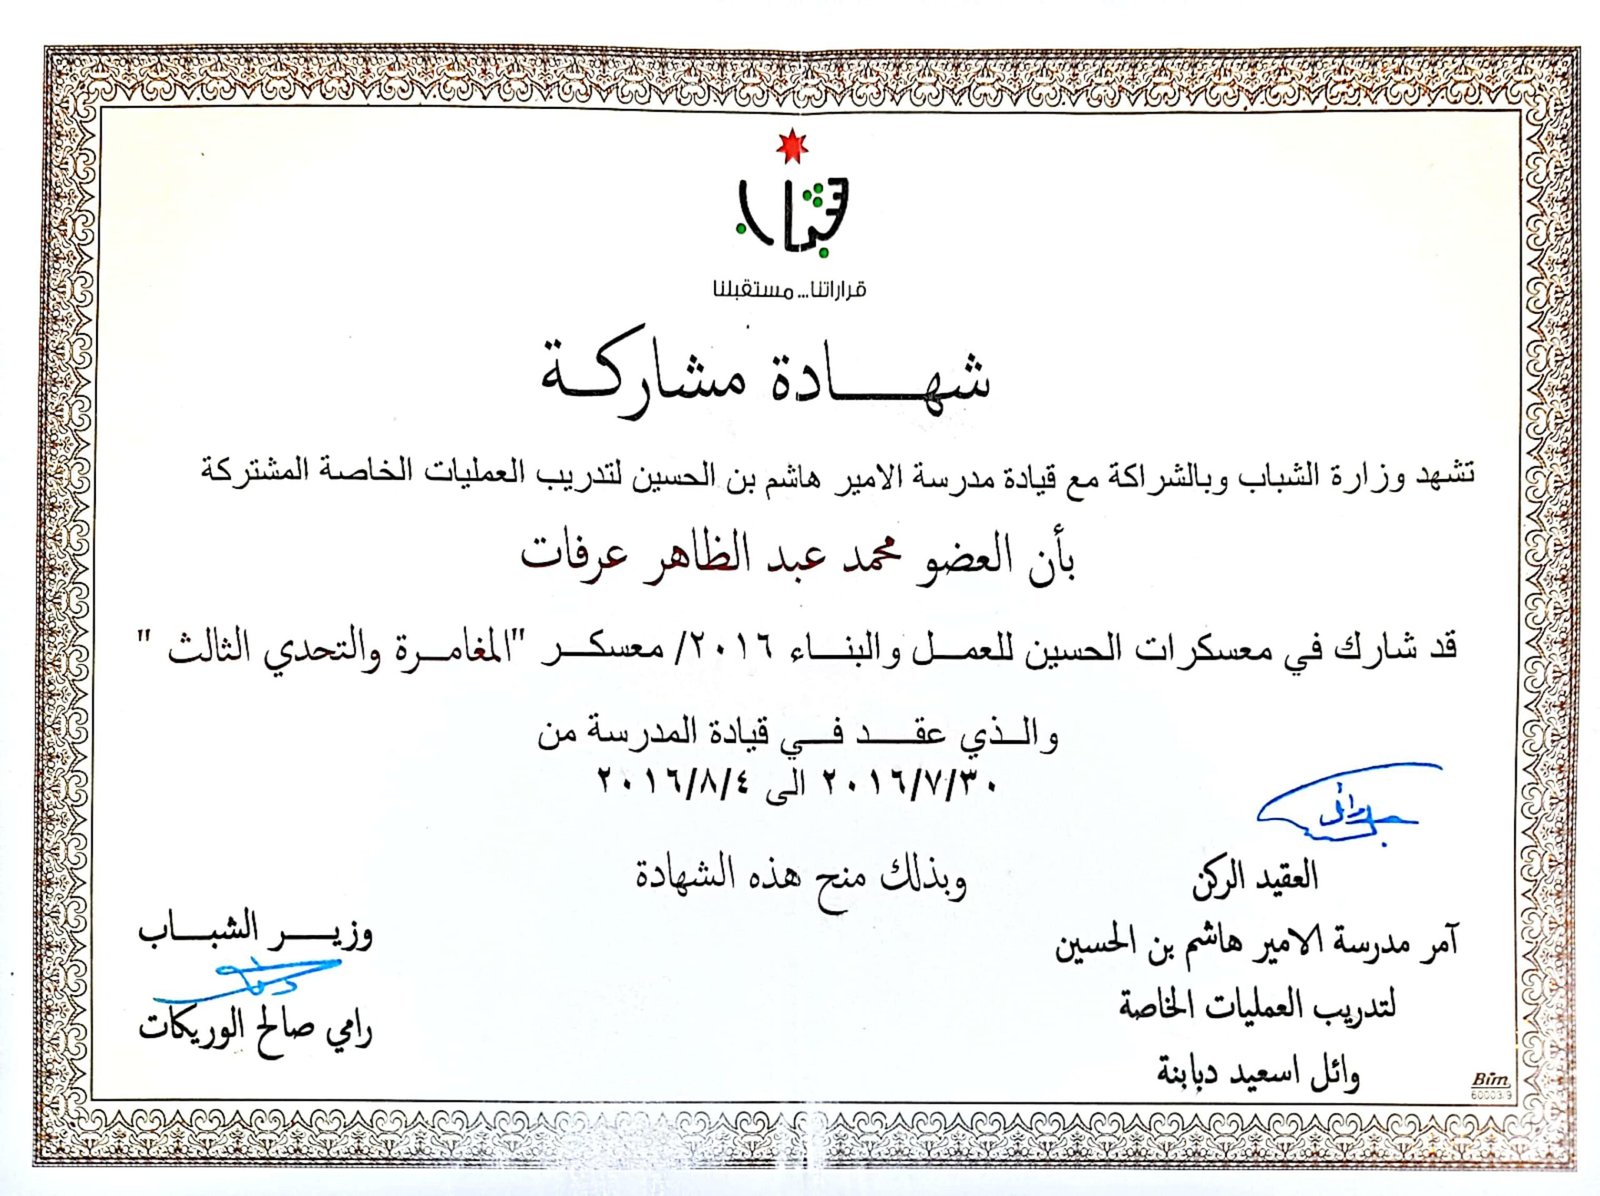 شباب
قراراتنا... مستقبلنا
شهـــــادة مشاركـــة
تشهد وزارة الشباب وبالشراكة مع قيادة مدرسة الامير هاشم بن الحسين لتدريب العمليات الخاصة المشتركة
بأن العضو محمد عبد الظاهر عرفات
قد شارك في معسكرات الحسين للعمــل والبنــاء ٢٠١٦/ معسكــر "المغامــرة والتحدي الثالث "
والــذي عقــد فــي قيادة المدرسة من
٢٠١٦/٧/٣٠ الى ٢٠١٦/٨/٤
وبذلك منح هذه الشهادة
العقيد الركن
آمر مدرسة الامير هاشم بن الحسين
لتدريب العمليات الخاصة
وائل اسعيد دبابنة
وزيــــر الشبــــاب
رامي صالح الوريكات
Bim
60003/9